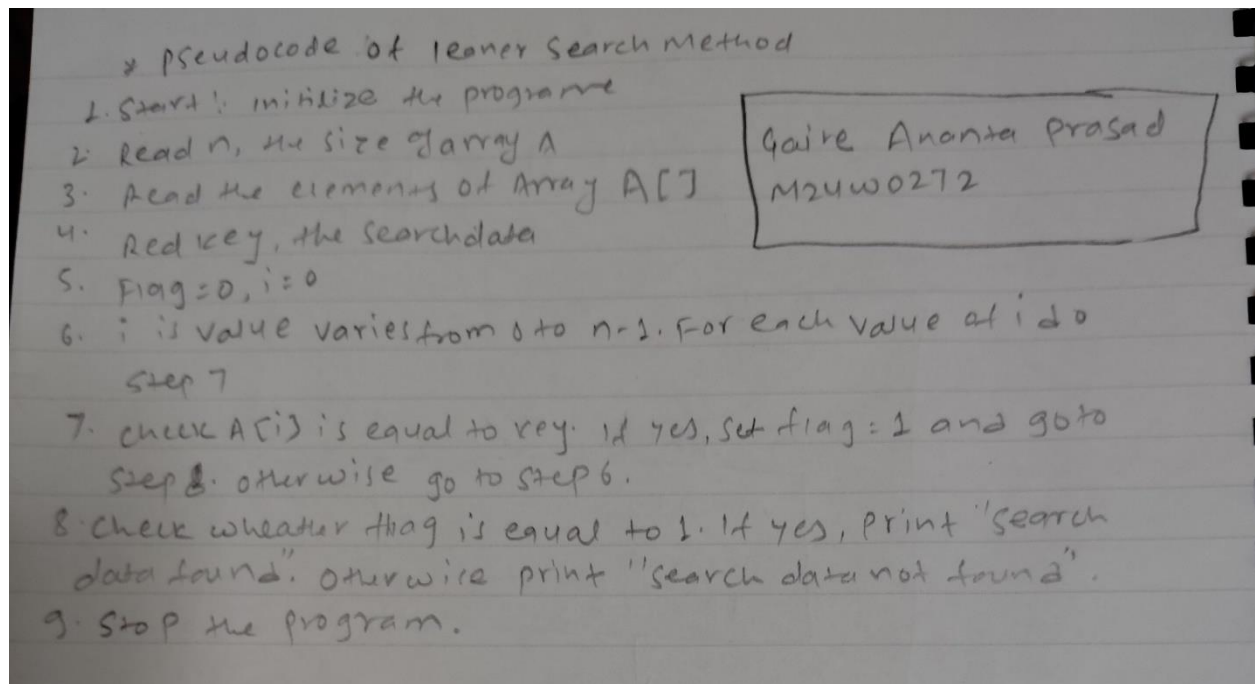 * Pseudocode of leaner search method
1. Start: initilize the programe
2. Read n, the size of array A
3. Read the elements of Array A[]
4. Red key, the searchdata
5. Flag=0, i=0
6. i is value varies from 0 to n-1. For each value of i do
step 7
7. check A[i] is equal to key. if yes, set flag=1 and goto
step 8. otherwise go to step 6.
8. check wheather flag is equal to 1. If yes, print "search
data found". otherwise print "search data not found".
9. Stop the program.
Gaire Ananta Prasad
M24W0272